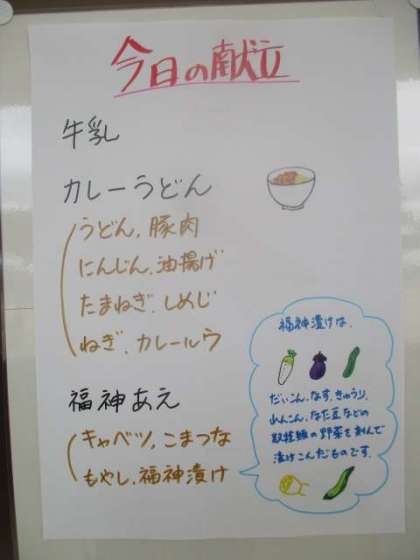 今日の献立
牛乳
カレーうどん
うどん、豚肉
にんじん、油揚げ
たまねぎ、しめじ
ねぎ、カレールウ
福神あえ
キャベツ、こまつな
もやし、福神漬け
福神漬けは、
だいこん、なす、きゅうり、
れんこん、なた豆などの
数種類の野菜を刻んで
漬けこんだものです。